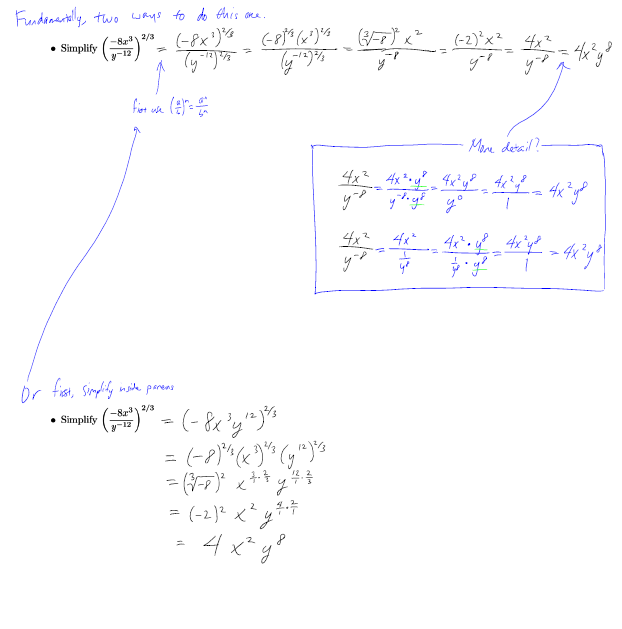 Fundamentally, two ways to do this one.
• Simplify (−8x³/y⁻¹²)^(2/3) = (−8x³)^(2/3)/(y⁻¹²)^(2/3) = (−8)^(2/3)(x³)^(2/3)/(y⁻¹²)^(2/3) = (∛−8)² x²/y⁻⁸ = (−2)² x²/y⁻⁸ = 4x²/y⁻⁸ = 4x²y⁸
first use (a/b)ⁿ = aⁿ/bⁿ
More detail?
4x²/y⁻⁸ = 4x²·y⁸/y⁻⁸·y⁸ = 4x²y⁸/y⁰ = 4x²y⁸/1 = 4x²y⁸
4x²/y⁻⁸ = 4x²/(1/y⁸) = 4x²·y⁸/(1/y⁸·y⁸) = 4x²y⁸/1 = 4x²y⁸
Or first, simplify inside parens
• Simplify (−8x³/y⁻¹²)^(2/3) = (−8x³y¹²)^(2/3)
= (−8)^(2/3)(x³)^(2/3)(y¹²)^(2/3)
= (∛−8)² x^(3/1·2/3) y^(12/1·2/3)
= (−2)² x² y^(4/1·2/1)
= 4x²y⁸